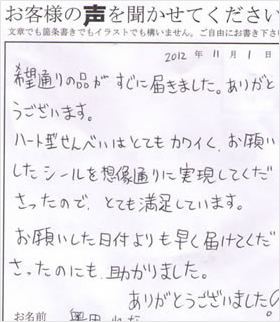 お客様の声を聞かせてください
文章でも箇条書きでもイラストでも構いません。ご自由にお書き下さい
2012 年 11 月 1 日
希望通りの品が すぐに届きました。ありがと
うございます。
ハート型せんべいはとてもカワイく、お願い
したシールを想像通りに実現してくだ
さったので、とても満足しています。
お願いした日付よりも早く届けてくだ
さったのにも、助かりました。
ありがとうございました
お名前